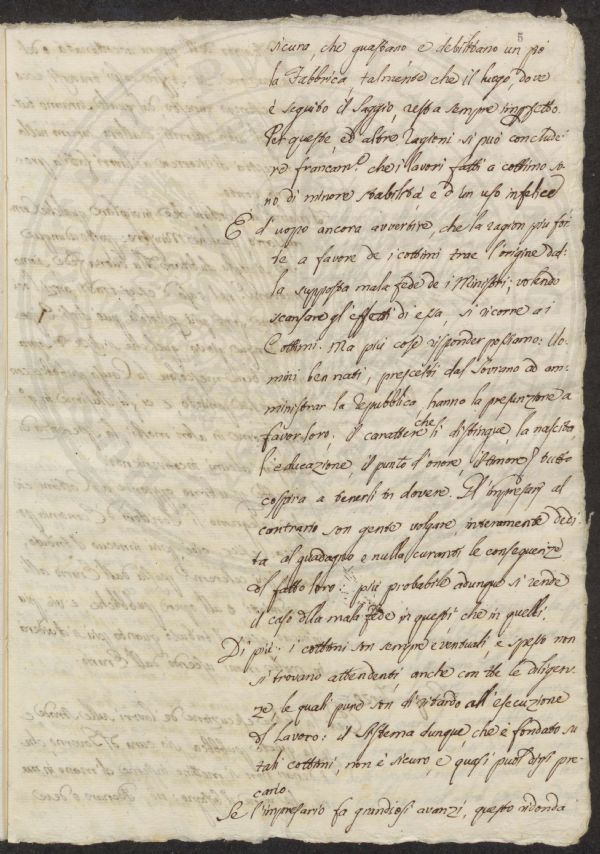 5
sicura, che guastano e debilitano un pò
la Fabbrica, talmente che il luogo, dove
è seguito il saggio, resta sempre imperfetto.
Per queste, ed altre ragioni si può conclude-
re francam.e che i lavori fatti a cottimo so-
no di minore stabilità e d'un uso infelice
E d'uopo ancora avvertire, che la ragion piu for-
te a favore de i cottimi trae l'origine dal-
la supposta mala fede de i Ministri; volendo
scansare gl'effetti di essa, si ricorre a i
Cottimi. Ma più cose risponder possiamo: Uo-
mini ben nati, prescelti dal Sovrano ad am-
ministrar la Repubblica, hanno la presunzione a
favor loro; il carattere che li distingue, la nascita
l'educazione, il punto d'onore, il timore, tutto
cospira a tenerli in dovere. Gl'impresarj al
contrario son gente volgare, interamente dedi-
ta al guadagno e nulla curanti le conseguenze
del fatto loro: più probabile adunque si rende
il caso della mala fede in questi che in quelli.
Di più: i cottimi son sempre eventuali, e spesso non
si trovano attendenti, anche con tte le diligen-
ze, le quali pure son di ritardo all'esecuzione
del Lavoro: il sistema dunque, che è fondato su
tali cottimi, non è sicuro, e quasi puol dirsi pre-
cario.
Se l'impresario fa grandiosi avanzi, questo ridonda